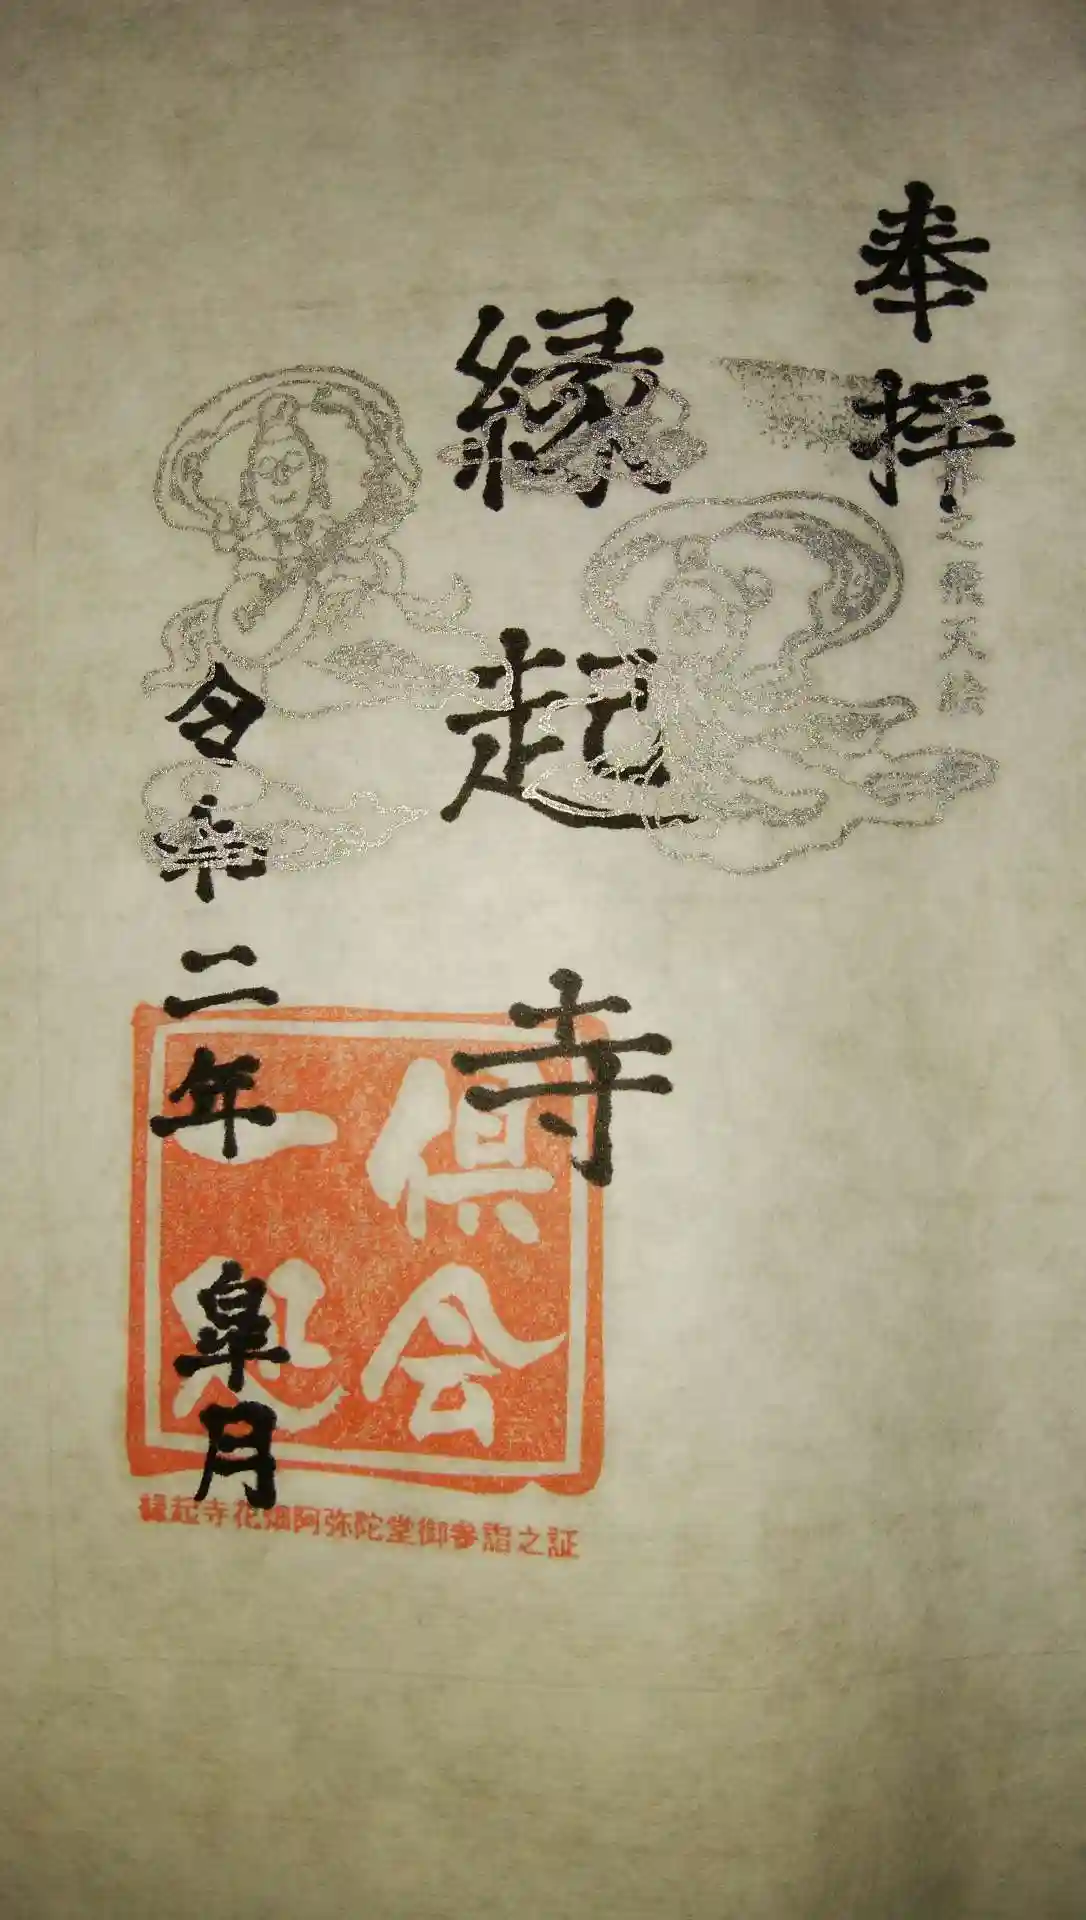 奉拝
之飛天絵
縁起寺
令和二年 皐月
倶会
一処
縁起寺花畑阿弥陀堂御参詣之証